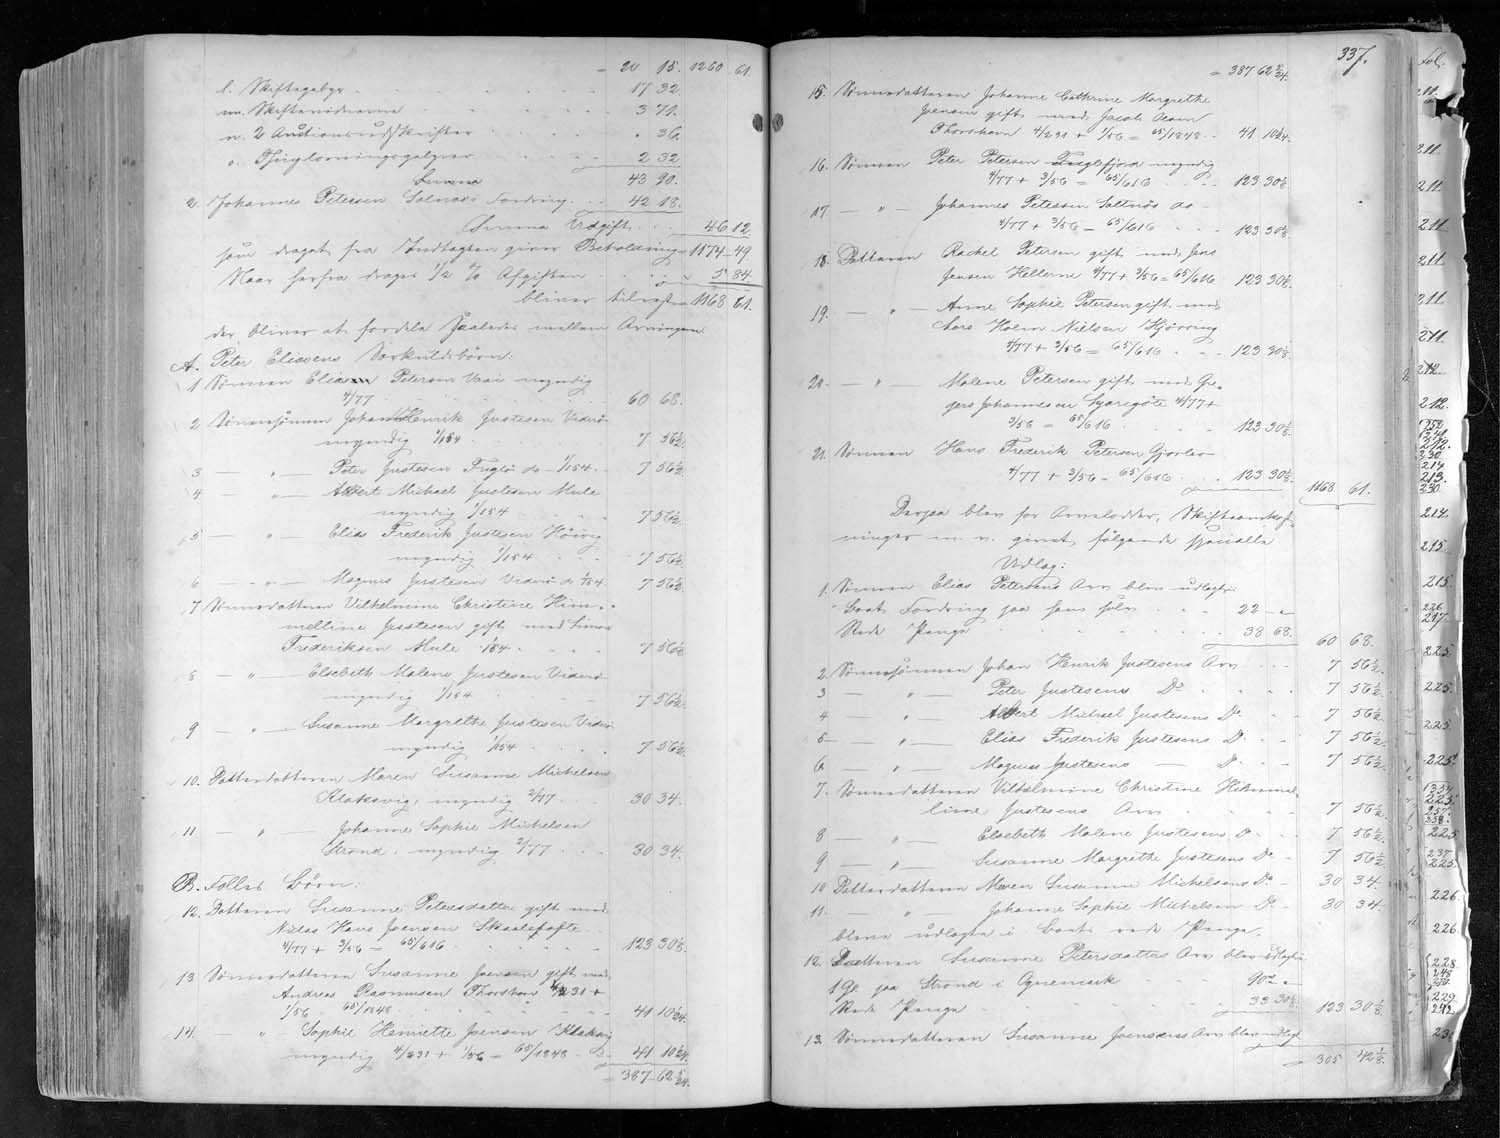 = 20 15. 1260 61.
l. Skiftegebyr 17 32.
m. 3 71.
n. 2 Auctionsudskrifter " 36.
o. Thinglæsningsgebyr 2 32
Summa 43 90.
2. Johannes Petersen Saltnæs Fordring 42 18.
Summa Udgift 46 12.
som draget fra Indtægten giver Beholdning = 1174 49.
Naar herfra drages 1/2 % Afgiften 5 84.
bliver tilrest = 1168 61.
der bliver at fordele saaledes mellem Arvingerne
A. Peter Eliasens Særkuldsbørn:
1 Sønnen Elias Petersen myndig
4/77 60 68.
2 Sønnesønnen Johan Henrik Justesen Viderø
myndig 1/154 7 56½
3 — " — Peter Justesen Fuglø do 1/154 7 56½
4 — " — Albert Michael Justesen Mule
myndig 1/154 7 56½
5 — " — Elias Frederik Justesen
myndig 1/154 7 56½
6 — " — Magnus Justesen Viderø do 1/154 7 56½
7 Sønnedatteren Vilhelmine Christine Him-
meline Justesen gift med Simon
Frederiksen Mule 1/154 7 56½
8 — " — Elsebeth Malene Justesen Viderø
myndig 1/154 7 56½
9 — " — Susanne Margrethe Justesen Viderø
myndig 1/154 7 56½
10. Datterdatteren Maren Susanne Michelsen
Klaksvig, myndig 2/77 30 34.
11 — " — Johanne Sophie Michelsen
Strond, myndig 2/77 30 34.
B. Fælles Børn:
12. Datteren Susanne Petersdatter gift med
Niclas Hans Joensen Skaalefofte
4/77 + 3/56 = 65/616 123 30⅛
13 Sønnedatteren Susanne Joensen gift med
Andreas Rasmussen Thorshavn 4/231 +
1/56 = 65/1848 41 10 1/24
14. — " — Sophie Henriette Joensen Klaksvig
myndig 4/231 + 1/56 = 65/1848 41 10 1/24
= 387 62 5/24
337.
= 387 62 5/24
15. Sønnedatteren Johanne Cathrine Margrethe
Joensen gift med Jacob
Thorshavn 4/231 + 1/56 = 65/1848 41 10 1/24
16. Sønnen Peter Petersen Fuglefjord myndig
4/77 + 3/56 = 65/616 123 30⅛
17 — " — Johannes Petersen Saltnæs do
4/77 + 3/56 = 65/616 123 30⅛
18. Datteren Rachel Petersen gift med Jens
Jensen Hellerne 4/77 + 3/56 = 65/616 123 30⅛
19. — " — Anne Sophie Petersen gift med
Lars Holm Nielsen Hjørring
4/77 + 3/56 = 65/616 123 30⅛
20. — " — Malene Petersen gift med Gre-
gers Johannesen Syderigøte 4/77 +
3/56 = 65/616 123 30⅛
21. Sønnen Hans Frederik Petersen
4/77 + 3/56 = 65/616 123 30⅛
1168 61.
Derpaa blev for Arvelodder, Skifteomkost-
ninger m. v. givet følgende specielle
Udlæg:
1. Sønnen Elias Petersens Arv blev udlagt:
Boets Fordring paa ham selv 22 — "
Rede Penge 38 68. 60 68.
2. Sønnesønnen Johan Henrik Justesens Arv 7 56½
3 — " — Peter Justesens Do 7 56½
4 — " — Albert Michael Justesens Do 7 56½
5 — " — Elias Frederik Justesens Do 7 56½
6 — " — Magnus Justesens — Do 7 56½
7. Sønnedatteren Vilhelmine Christine Himme-
line Justesens Arv 7 56½
8 — " — Elsebeth Malene Justesens Do 7 56½
9 — " — Susanne Margrethe Justesens Do 7 56½
10 Datterdatteren Maren Susanne Michelsens Do 30 34.
11. — " — Johanne Sophie Michelsen Do 30 34.
bleve udlagte i Boets rede Penge.
12. Datteren Susanne Petersdatters Arv blev udlagt:
1 Gl. paa Strond i Agnemark 90 "
Rede Penge 33 30⅛ 123 30⅛
13. Sønnedatteren Susanne Joensens Arv blev udlagt
= 305 42⅛
Fol.
211.
211.
211.
211.
211.
211.
211.
212.
212.
230
214
213.
230.
214.
215.
215.
226
217.
225.
225.
225.
225.
225.
225.
226.
226.
228
229
242.